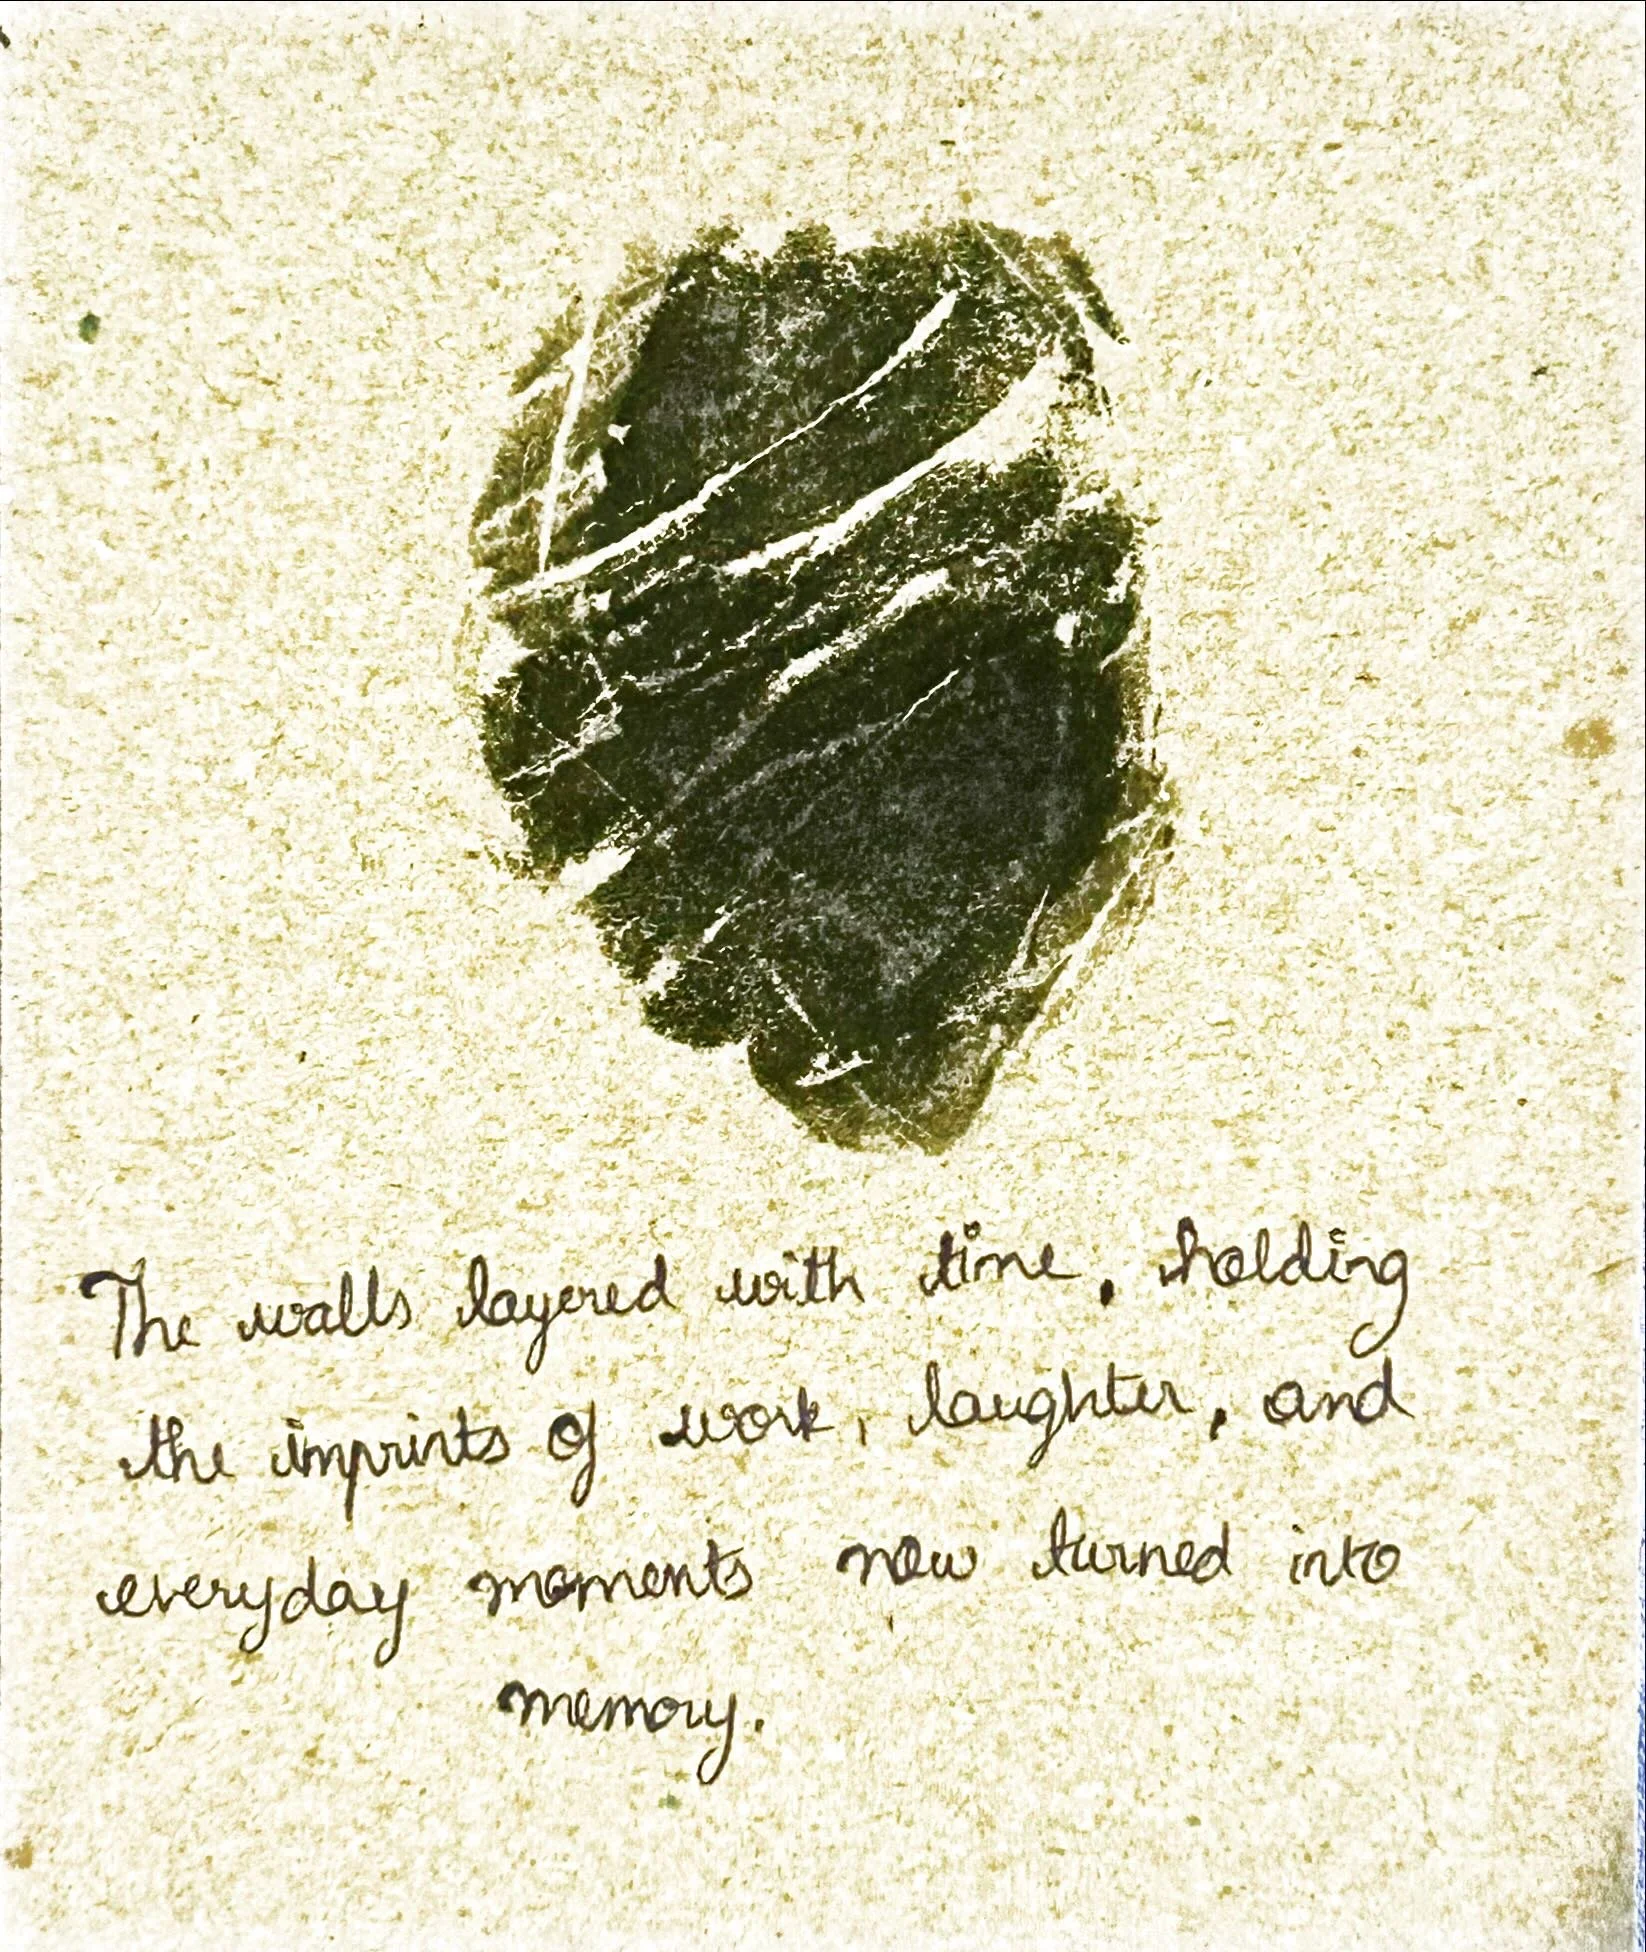 The walls layered with time, holding
the imprints of work, laughter, and
everyday moments now turned into
memory.